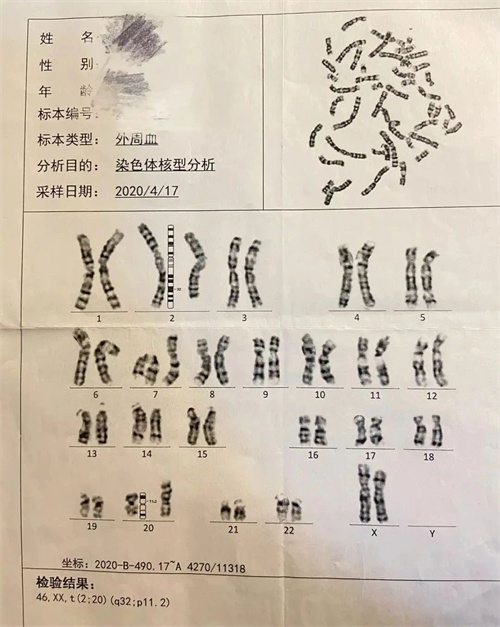 姓 名:
性 别:
年 龄:
标本编号:
标本类型: 外周血
分析目的: 染色体核型分析
采样日期: 2020/4/17
1 2 3 4 5
6 7 8 9 10 11 12
13 14 15 16 17 18
19 20 21 22 X Y
坐标: 2020-B-490.17~A 4270/11318
检验结果:
46,XX,t(2;20)(q32;p11.2)